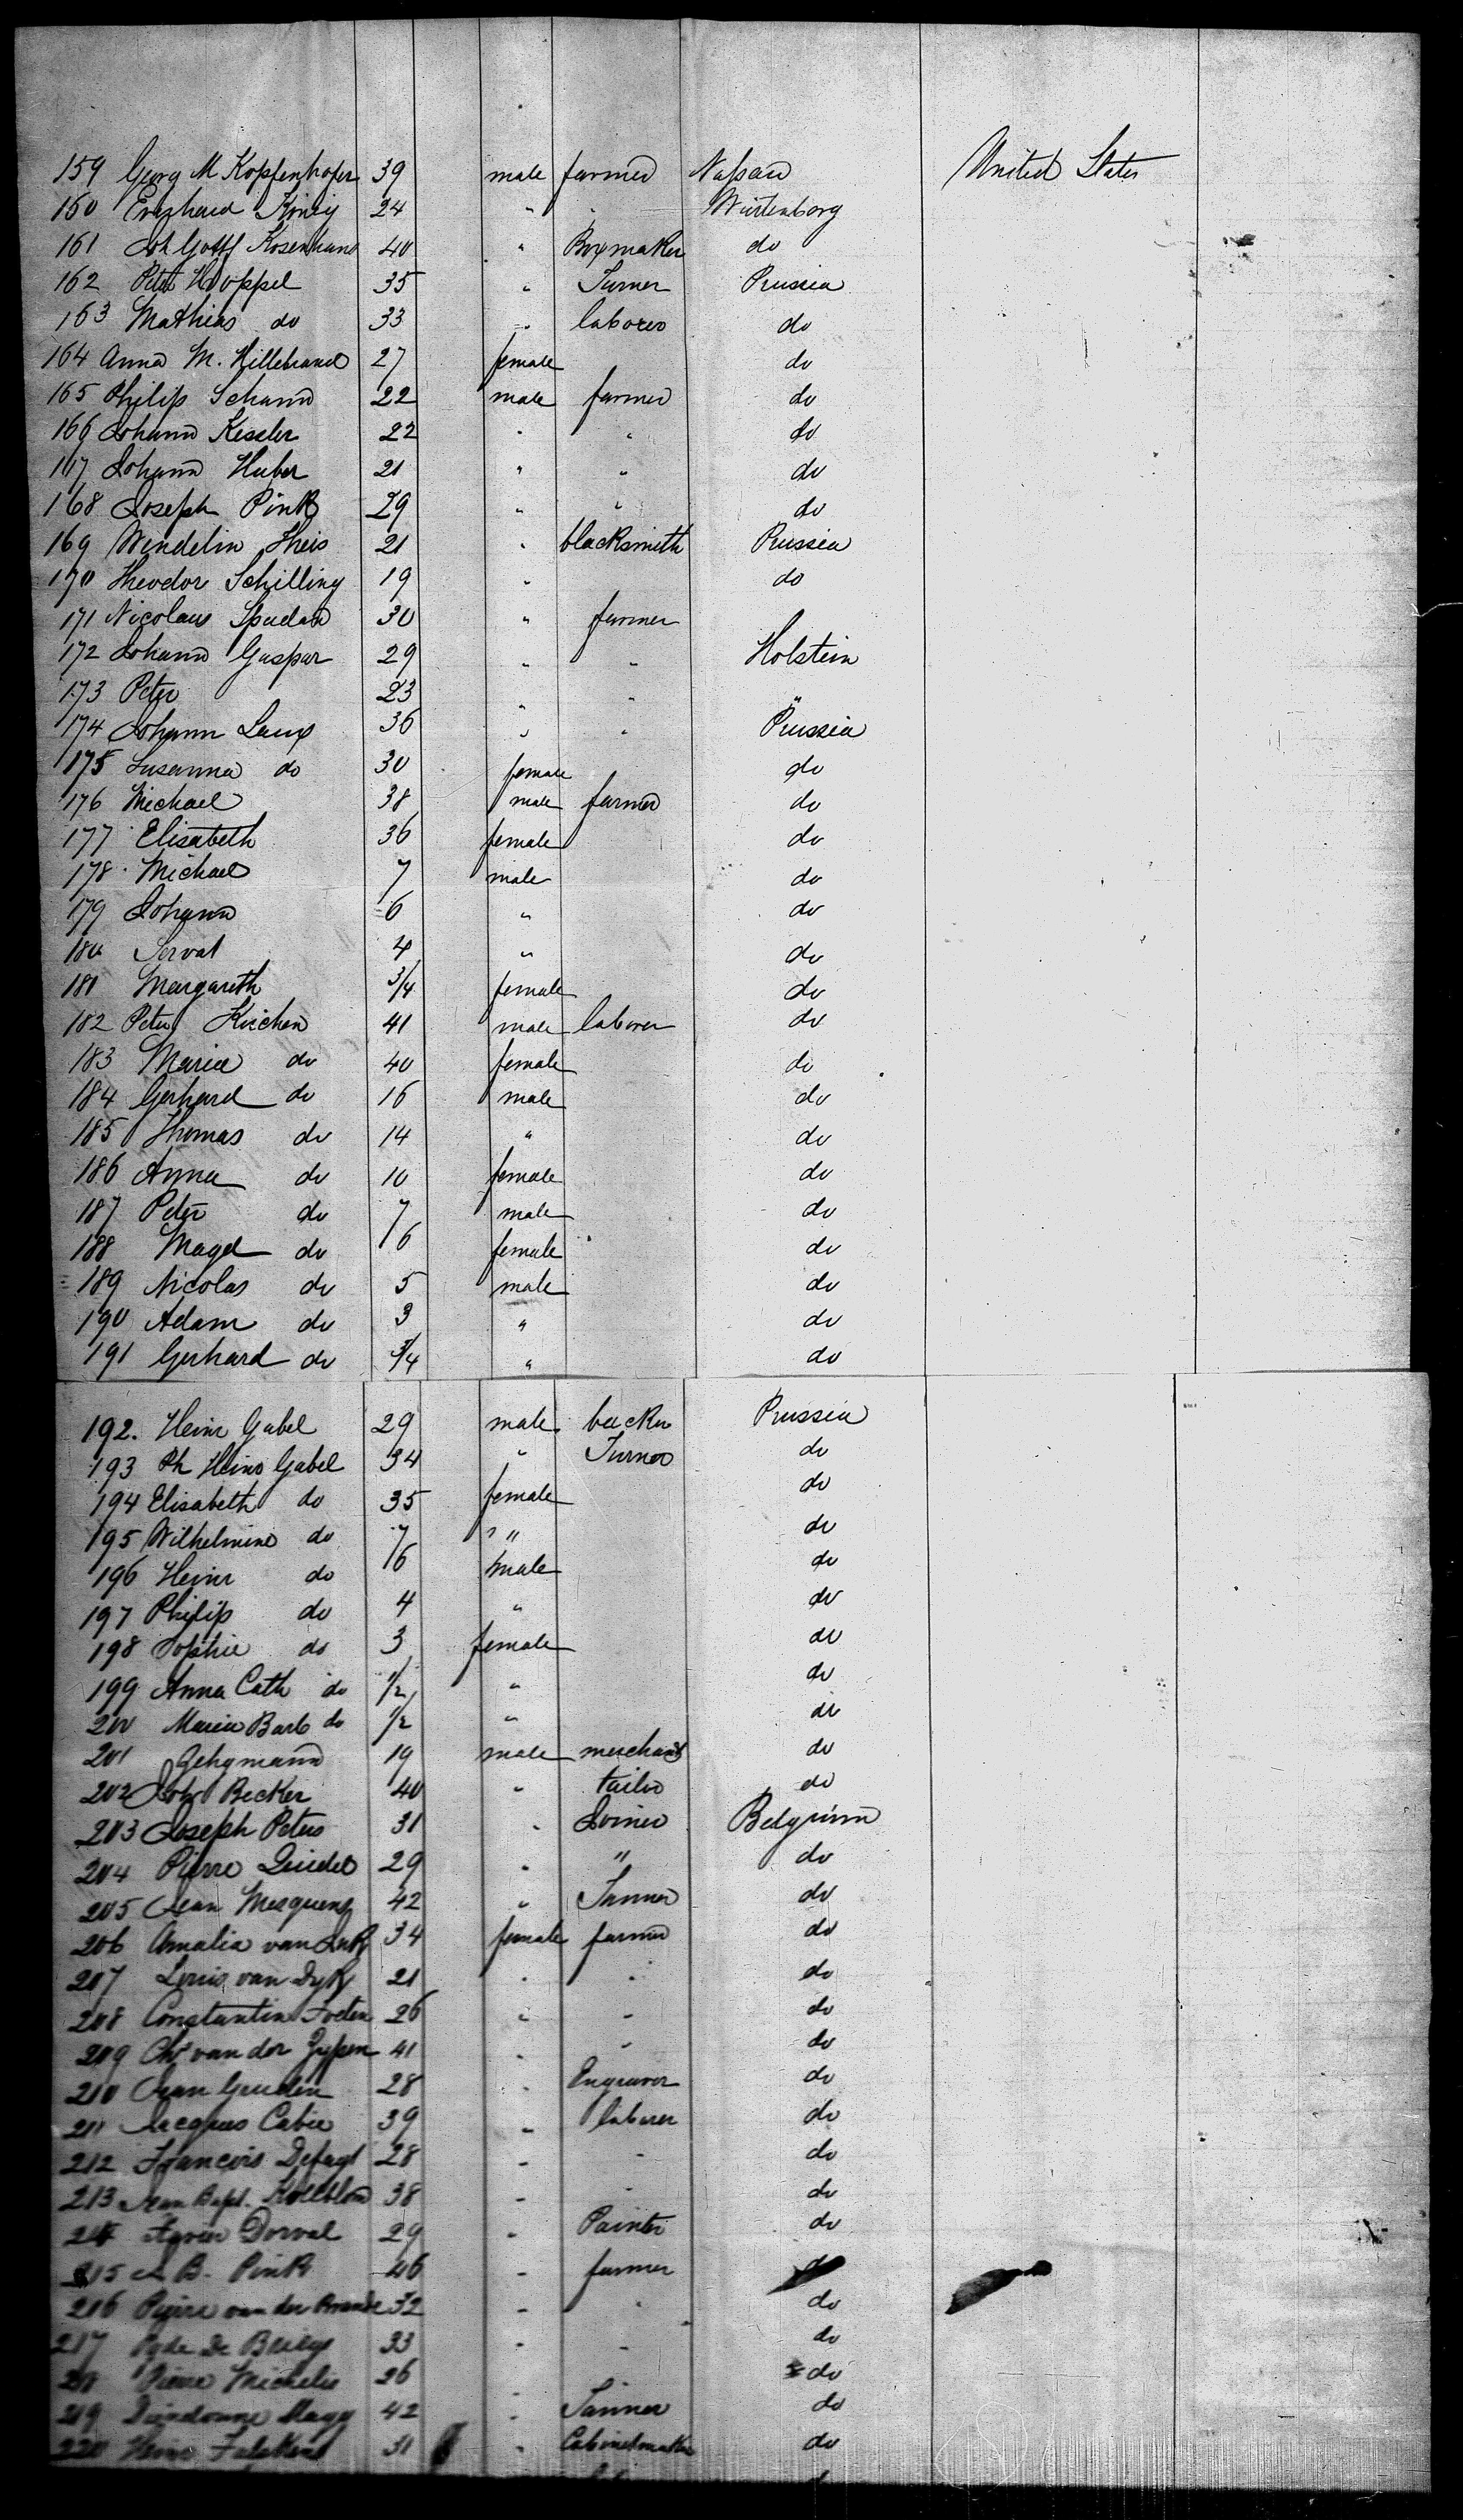 159 Georg M Kopfenhofer 39 male farmer Nassau United States
160 Everhard König 24 " " Würtenberg
161 Joh Gottf Rosenhan 40 " Boxmaker do
162 Peter Hoppel 35 " Turner Prussia
163 Mathias do 33 " laborer do
164 Anna M. Hillebrand 27 female do
165 Philip Schann 22 male farmer do
166 Johann Kessler 22 " " do
167 Johann Huber 21 " " do
168 Joseph Pink 29 " " do
169 Wendelin Theis 21 " blacksmith Prussia
170 Theodor Schilling 19 " do
171 Nicolaus Spudan 30 " farmer
172 Johann Gaspar 29 " " Holstein
173 Peter 23 " " "
174 Johann Laux 36 " " Prussia
175 Susanna do 30 female do
176 Michael 38 male farmer do
177 Elisabeth 36 female do
178 Michael 7 male do
179 Johann 6 " do
180 Servat 4 " do
181 Margareth 3/4 female do
182 Peter Kirchen 41 male laborer do
183 Maria do 40 female do
184 Gerhard do 16 male do
185 Thomas do 14 " do
186 Anna do 10 female do
187 Peter do 7 male do
188 Magd do 6 female do
189 Nicolas do 5 male do
190 Adam do 3 " do
191 Gerhard do 3/4 " do
192. Heinr Gabel 29 male backer Prussia
193 Ph Heinr Gabel 34 " Turner do
194 Elisabeth do 35 female do
195 Wilhelmine do 7 " do
196 Heinr do 6 male do
197 Philip do 4 " do
198 Sophie do 3 female do
199 Anna Cath do 1/2 " do
200 Maria Barb do 1/2 " do
201 Gehgmann 19 male merchant do
202 Joh Becker 40 " tailor do
203 Joseph Peters 31 " Joiner Belgium
204 Pierre 29 " " do
205 Jean 42 " Tanner do
206 Amalia van 34 female farmer do
207 Louis van Dyk 21 " " do
208 Constantin 26 " " do
209 Chr van der Zypen 41 " " do
210 Jean 28 " Engraver do
211 Jacques Cabie 39 " laborer do
212 Francois 28 " " do
213 Jean Bapt. 38 " " do
214 Dorval 29 " Painter do
215 J. B. Pink 46 " farmer do
216 Pierre van der 32 " " do
217 De 33 " " do
218 Pierre Michelis 26 do
219 42 " Tanner do
220 Heinr 31 " Cabinetmaker do